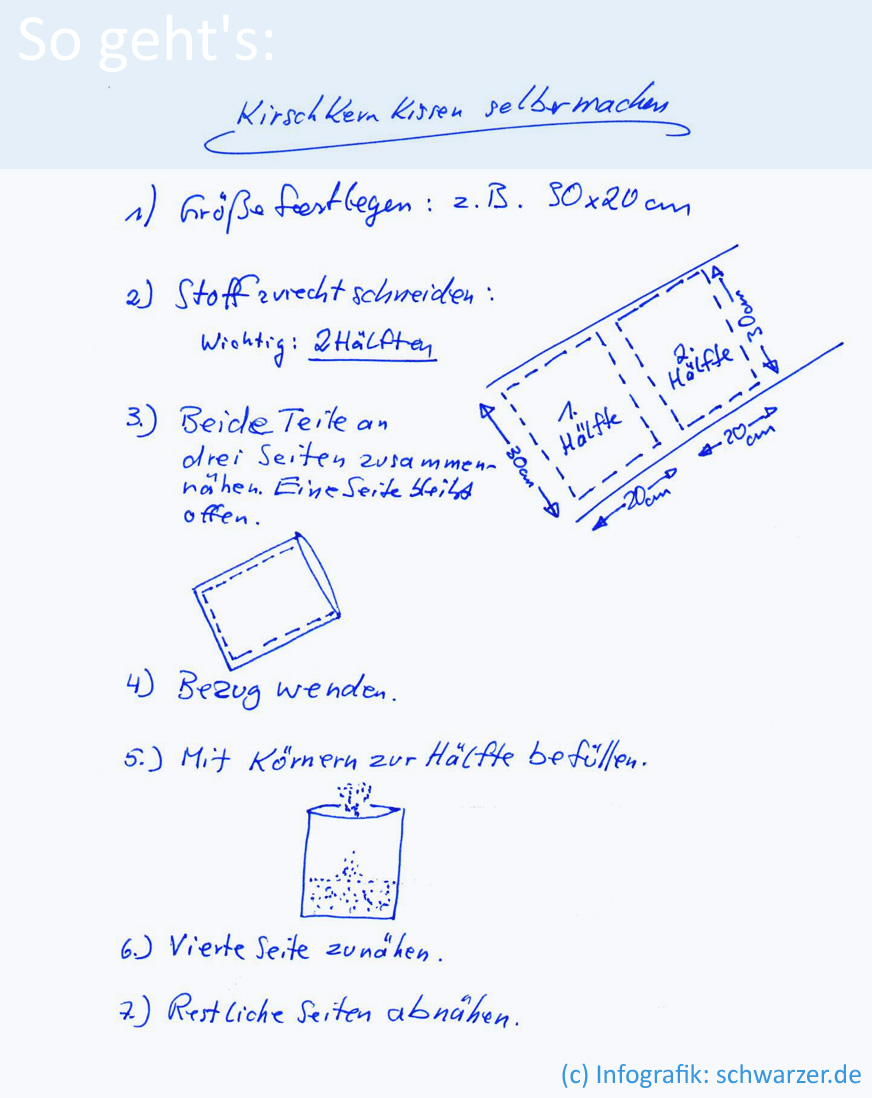 So geht's:
Kirschkern Kissen selbermachen
1) Größe festlegen: z.B. 30x20cm
2) Stoff zurecht schneiden:
Wichtig: 2 Hälften
1. Hälfte
2. Hälfte
30cm
30cm
20cm
20cm
3.) Beide Teile an
drei Seiten zusammen-
nähen. Eine Seite bleibt
offen.
4) Bezug wenden.
5.) Mit Körnern zur Hälfte befüllen.
6.) Vierte Seite zunähen.
7.) Restliche Seiten abnähen.
(c) Infografik: schwarzer.de